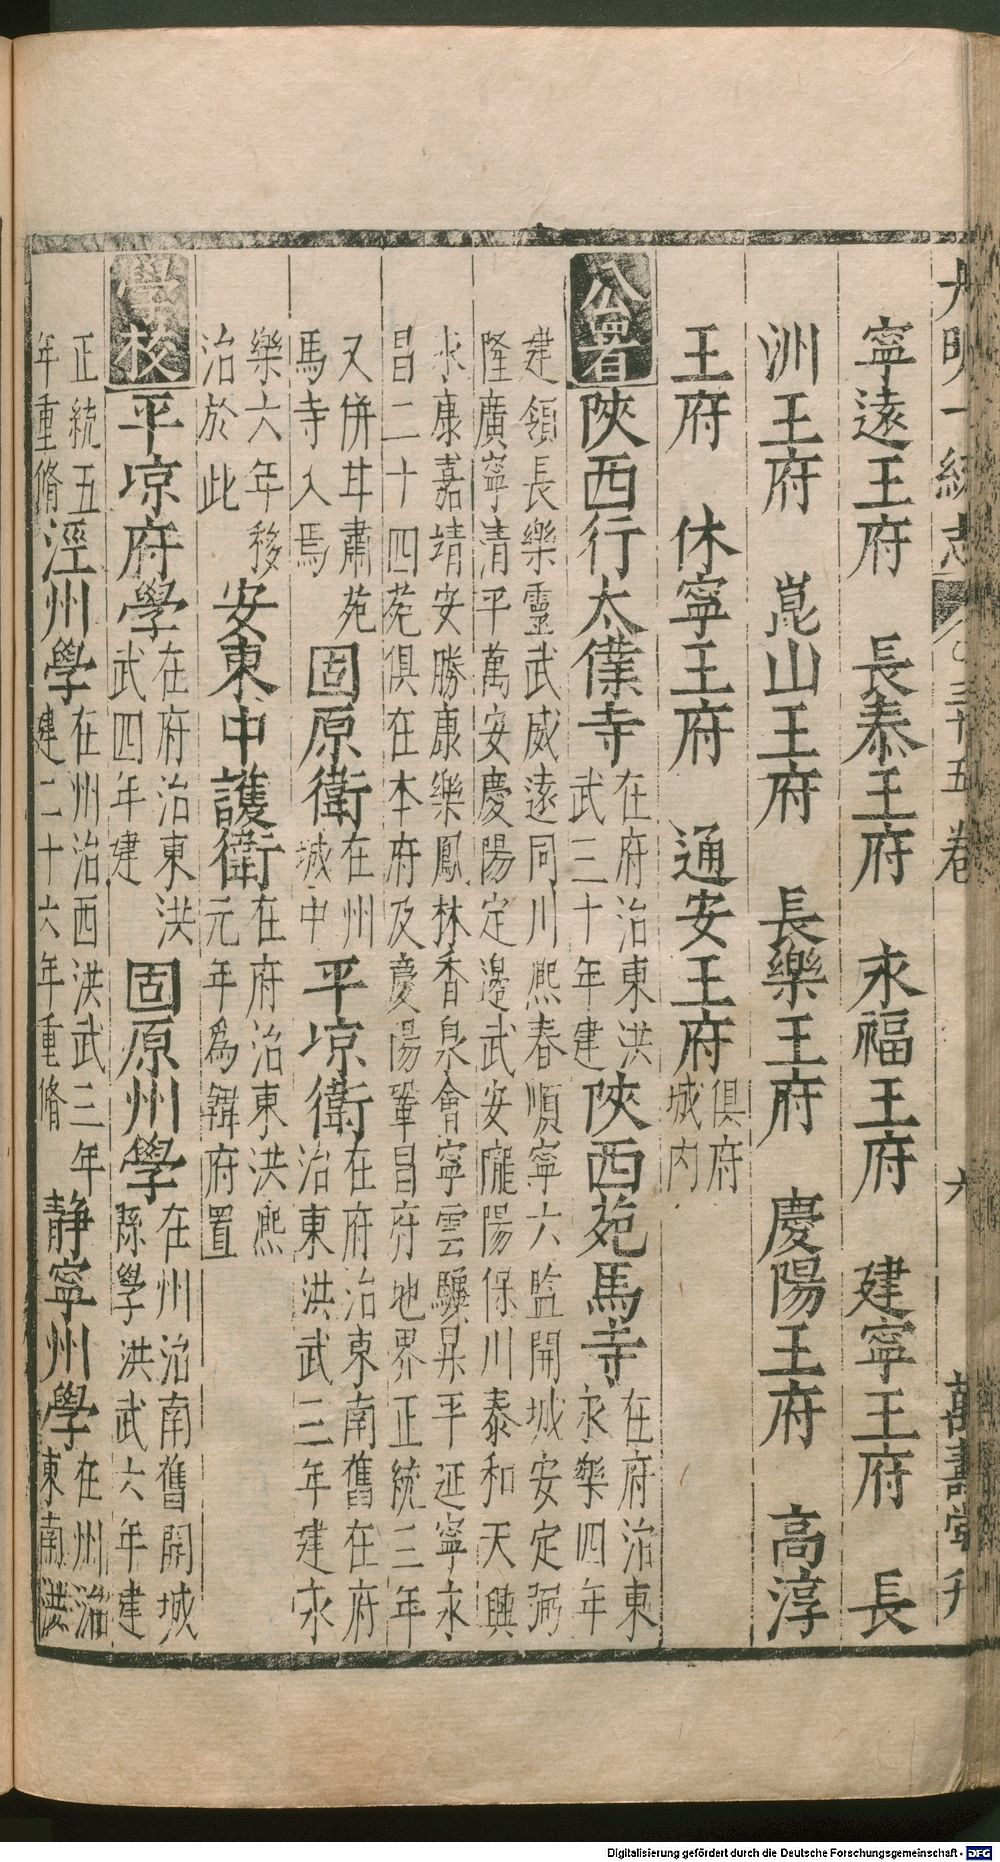 大明一統志 三十五卷 六 萬壽堂刊
寧遠王府 長泰王府 永福王府 建寧王府 長
洲王府 崑山王府 長樂王府 慶陽王府 高淳
王府 休寧王府 通安王府 俱府城內
公署 陝西行太僕寺 在府治東洪武三十年建 陝西苑馬寺 在府治東永樂四年
建領長樂靈武威遠同川熈春順寧六監開城安定弼
隆廣寧清平萬安慶陽定邊武安隴陽保川泰和天興
永康嘉靖安勝康樂鳳林香泉會寧雲驥昇平延寧永
昌二十四苑俱在本府及慶陽鞏昌府地界正統三年
又併甘肅苑馬寺入焉 固原衛 在州城中 平凉衛 在府治東南舊在府治東洪武三年建永
樂六年移治於此 安東中護衛 在府治東洪熈元年爲韓府置
學校 平凉府學 在府治東洪武四年建 固原州學 在州治南舊開城縣學洪武六年建
正統五年重脩 涇州學 在州治西洪武三年建二十六年重脩 静寧州學 在州治東南洪
Digitalisierung gefördert durch die Deutsche Forschungsgemeinschaft - DFG